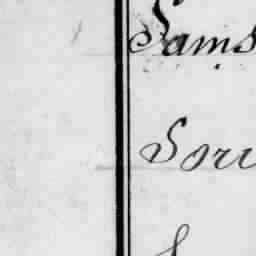 Sams
Sori